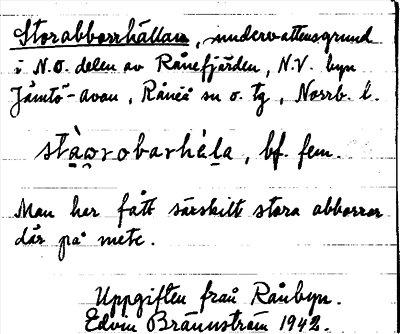 Storabborrhällan, undervattensgrund
i N.O. delen av Rånefjärden, N.V. byn
Jämtö-avan, Råneå sn o. tg, Norrb. l.
stà̱o̱robarhéḻa, bf. fem.
Man har fått särskilt stora abborrar
där på mete.
Uppgiften från Rånbyn.
Edvin Brännström 1942.